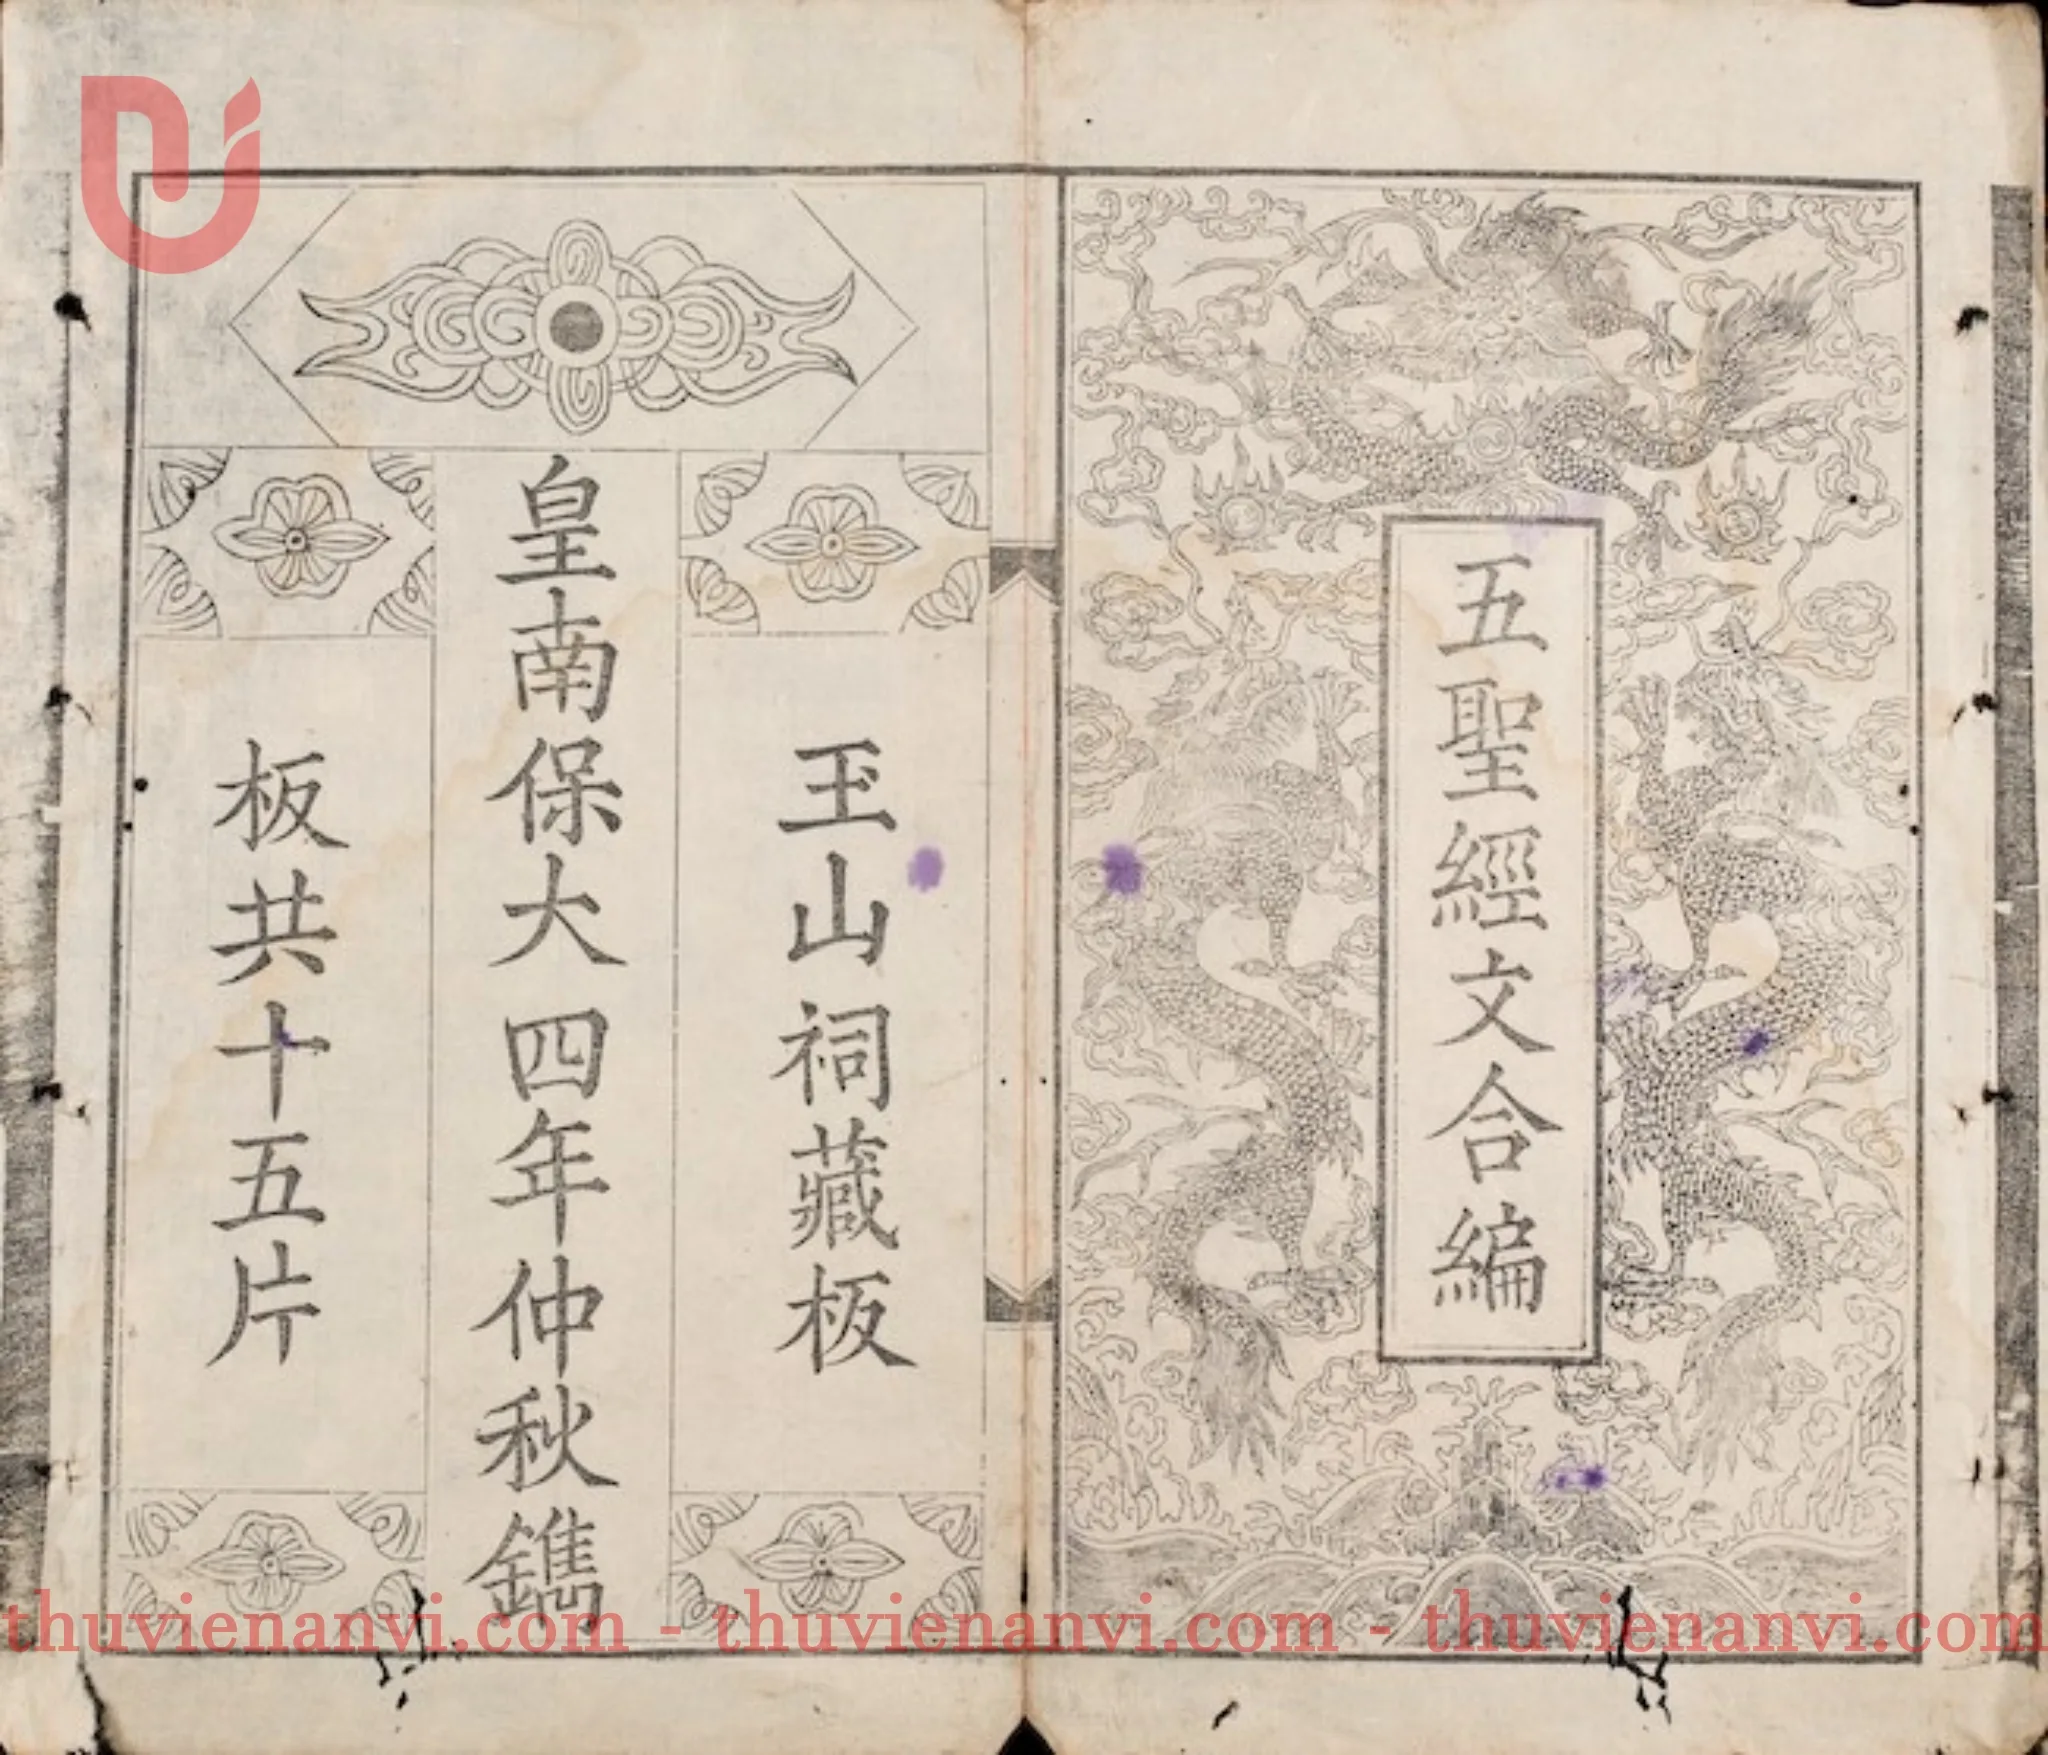 五聖經文合編
玉山祠藏板
皇南保大四年仲秋鐫
板共十五片
thuvienanvi.com - thuvienanvi.com - thuvienanvi.com